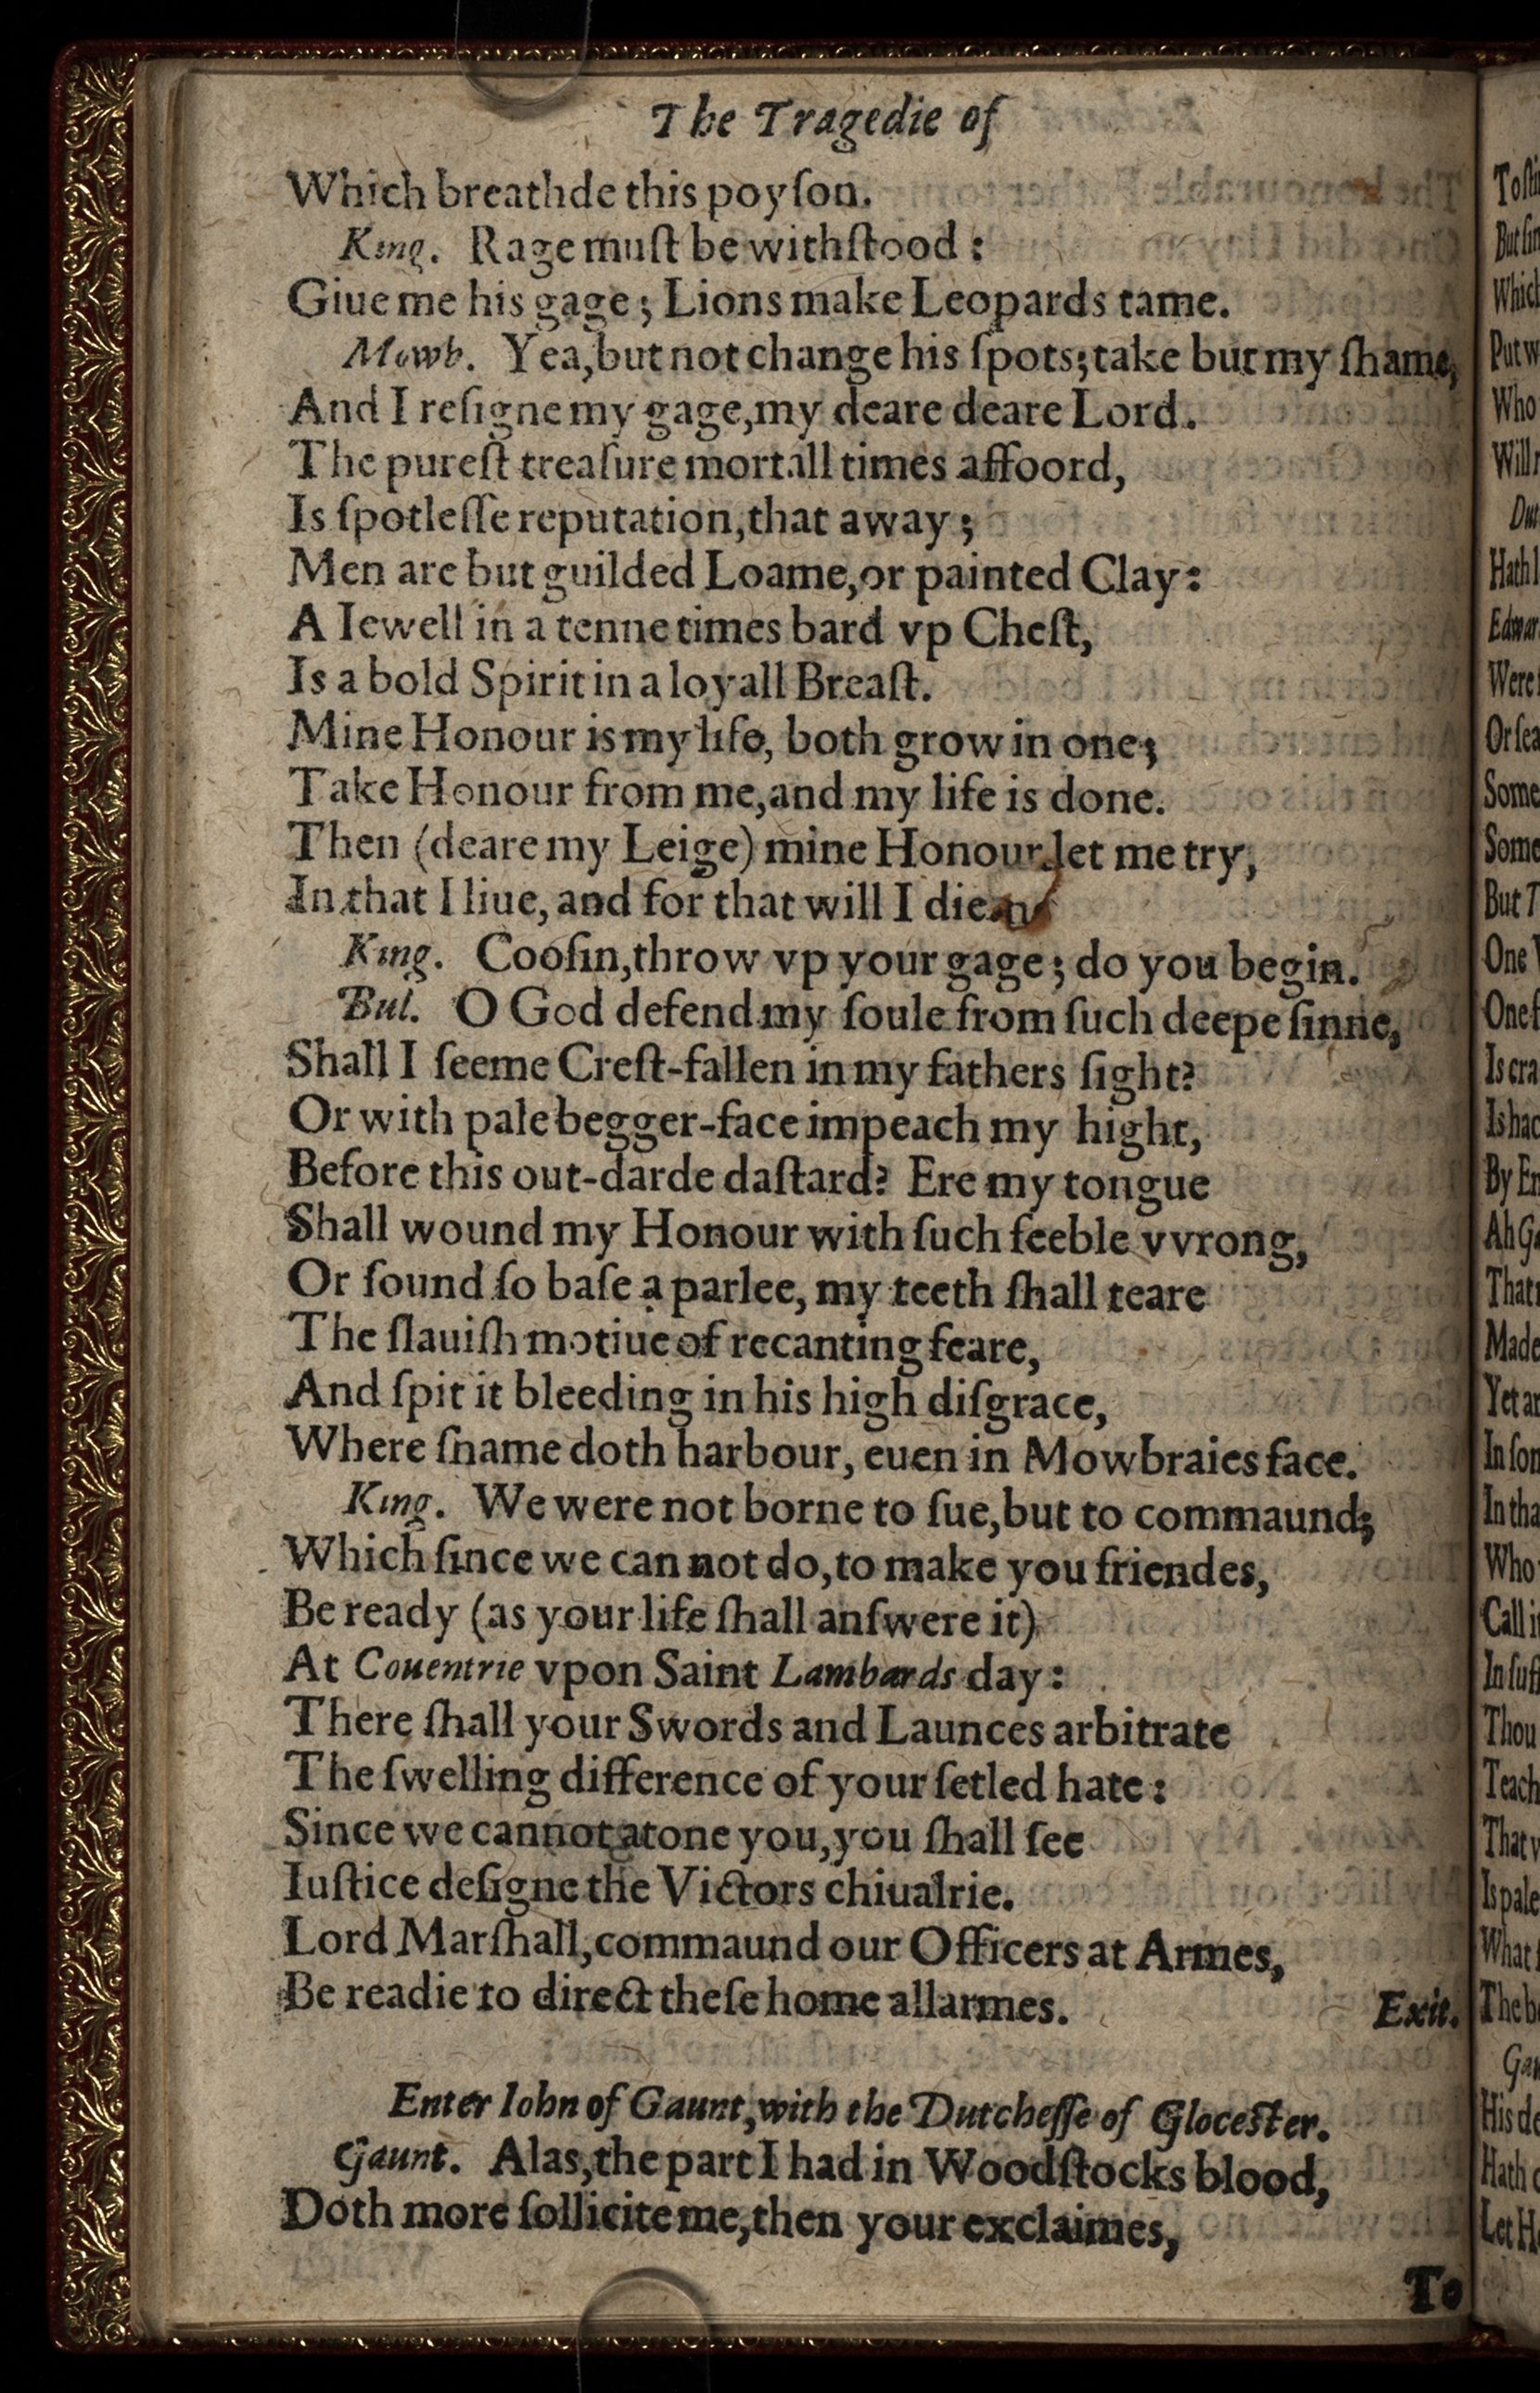 The Tragedie of
Which breathde this poyſon.
King. Rage muſt be withſtood :
Giue me his gage ; Lions make Leopards tame.
Mowb. Yea,but not change his ſpots;take but my ſhame,
And I reſigne my gage,my deare deare Lord.
The pureſt treaſure mortall times affoord,
Is ſpotleſſe reputation,that away ;
Men are but guilded Loame,or painted Clay:
A Iewell in a tenne times bard vp Cheſt,
Is a bold Spirit in a loyall Breaſt.
Mine Honour is my life, both grow in one;
Take Honour from me,and my life is done.
Then (deare my Leige) mine Honour let me try,
In that I liue, and for that will I die
King. Cooſin,throw vp your gage ; do you begin.
Bul. O God defend my ſoule from ſuch deepe ſinne,
Shall I ſeeme Creſt-fallen in my fathers ſight?
Or with pale begger-face impeach my hight,
Before this out-darde daſtard? Ere my tongue
Shall wound my Honour with ſuch feeble vvrong,
Or ſound ſo baſe a parlee, my teeth ſhall teare
The ſlauiſh motiue of recanting feare,
And ſpit it bleeding in his high diſgrace,
Where ſhame doth harbour, euen in Mowbraies face.
King. We were not borne to ſue,but to commaund;
Which ſince we can not do,to make you friendes,
Be ready (as your life ſhall anſwere it)
At Couentrie vpon Saint Lambards day :
There ſhall your Swords and Launces arbitrate
The ſwelling difference of your ſetled hate :
Since we cannot atone you,you ſhall ſee
Iuſtice deſigne the Victors chiualrie.
Lord Marſhall,commaund our Officers at Armes,
Be readie to direct theſe home allarmes. Exit.
Enter Iohn of Gaunt,with the Dutcheſſe of Gloceſter.
Gaunt. Alas,the part I had in Woodſtocks blood,
Doth more ſollicite me,then your exclaimes,
To
Which
Put w
Who
Were
Some
Some
But T
One
Is cra
Made
Yet ar
Who
Call i
Thou
Teach
That v
Is pale
What
The b
Hath
Let H